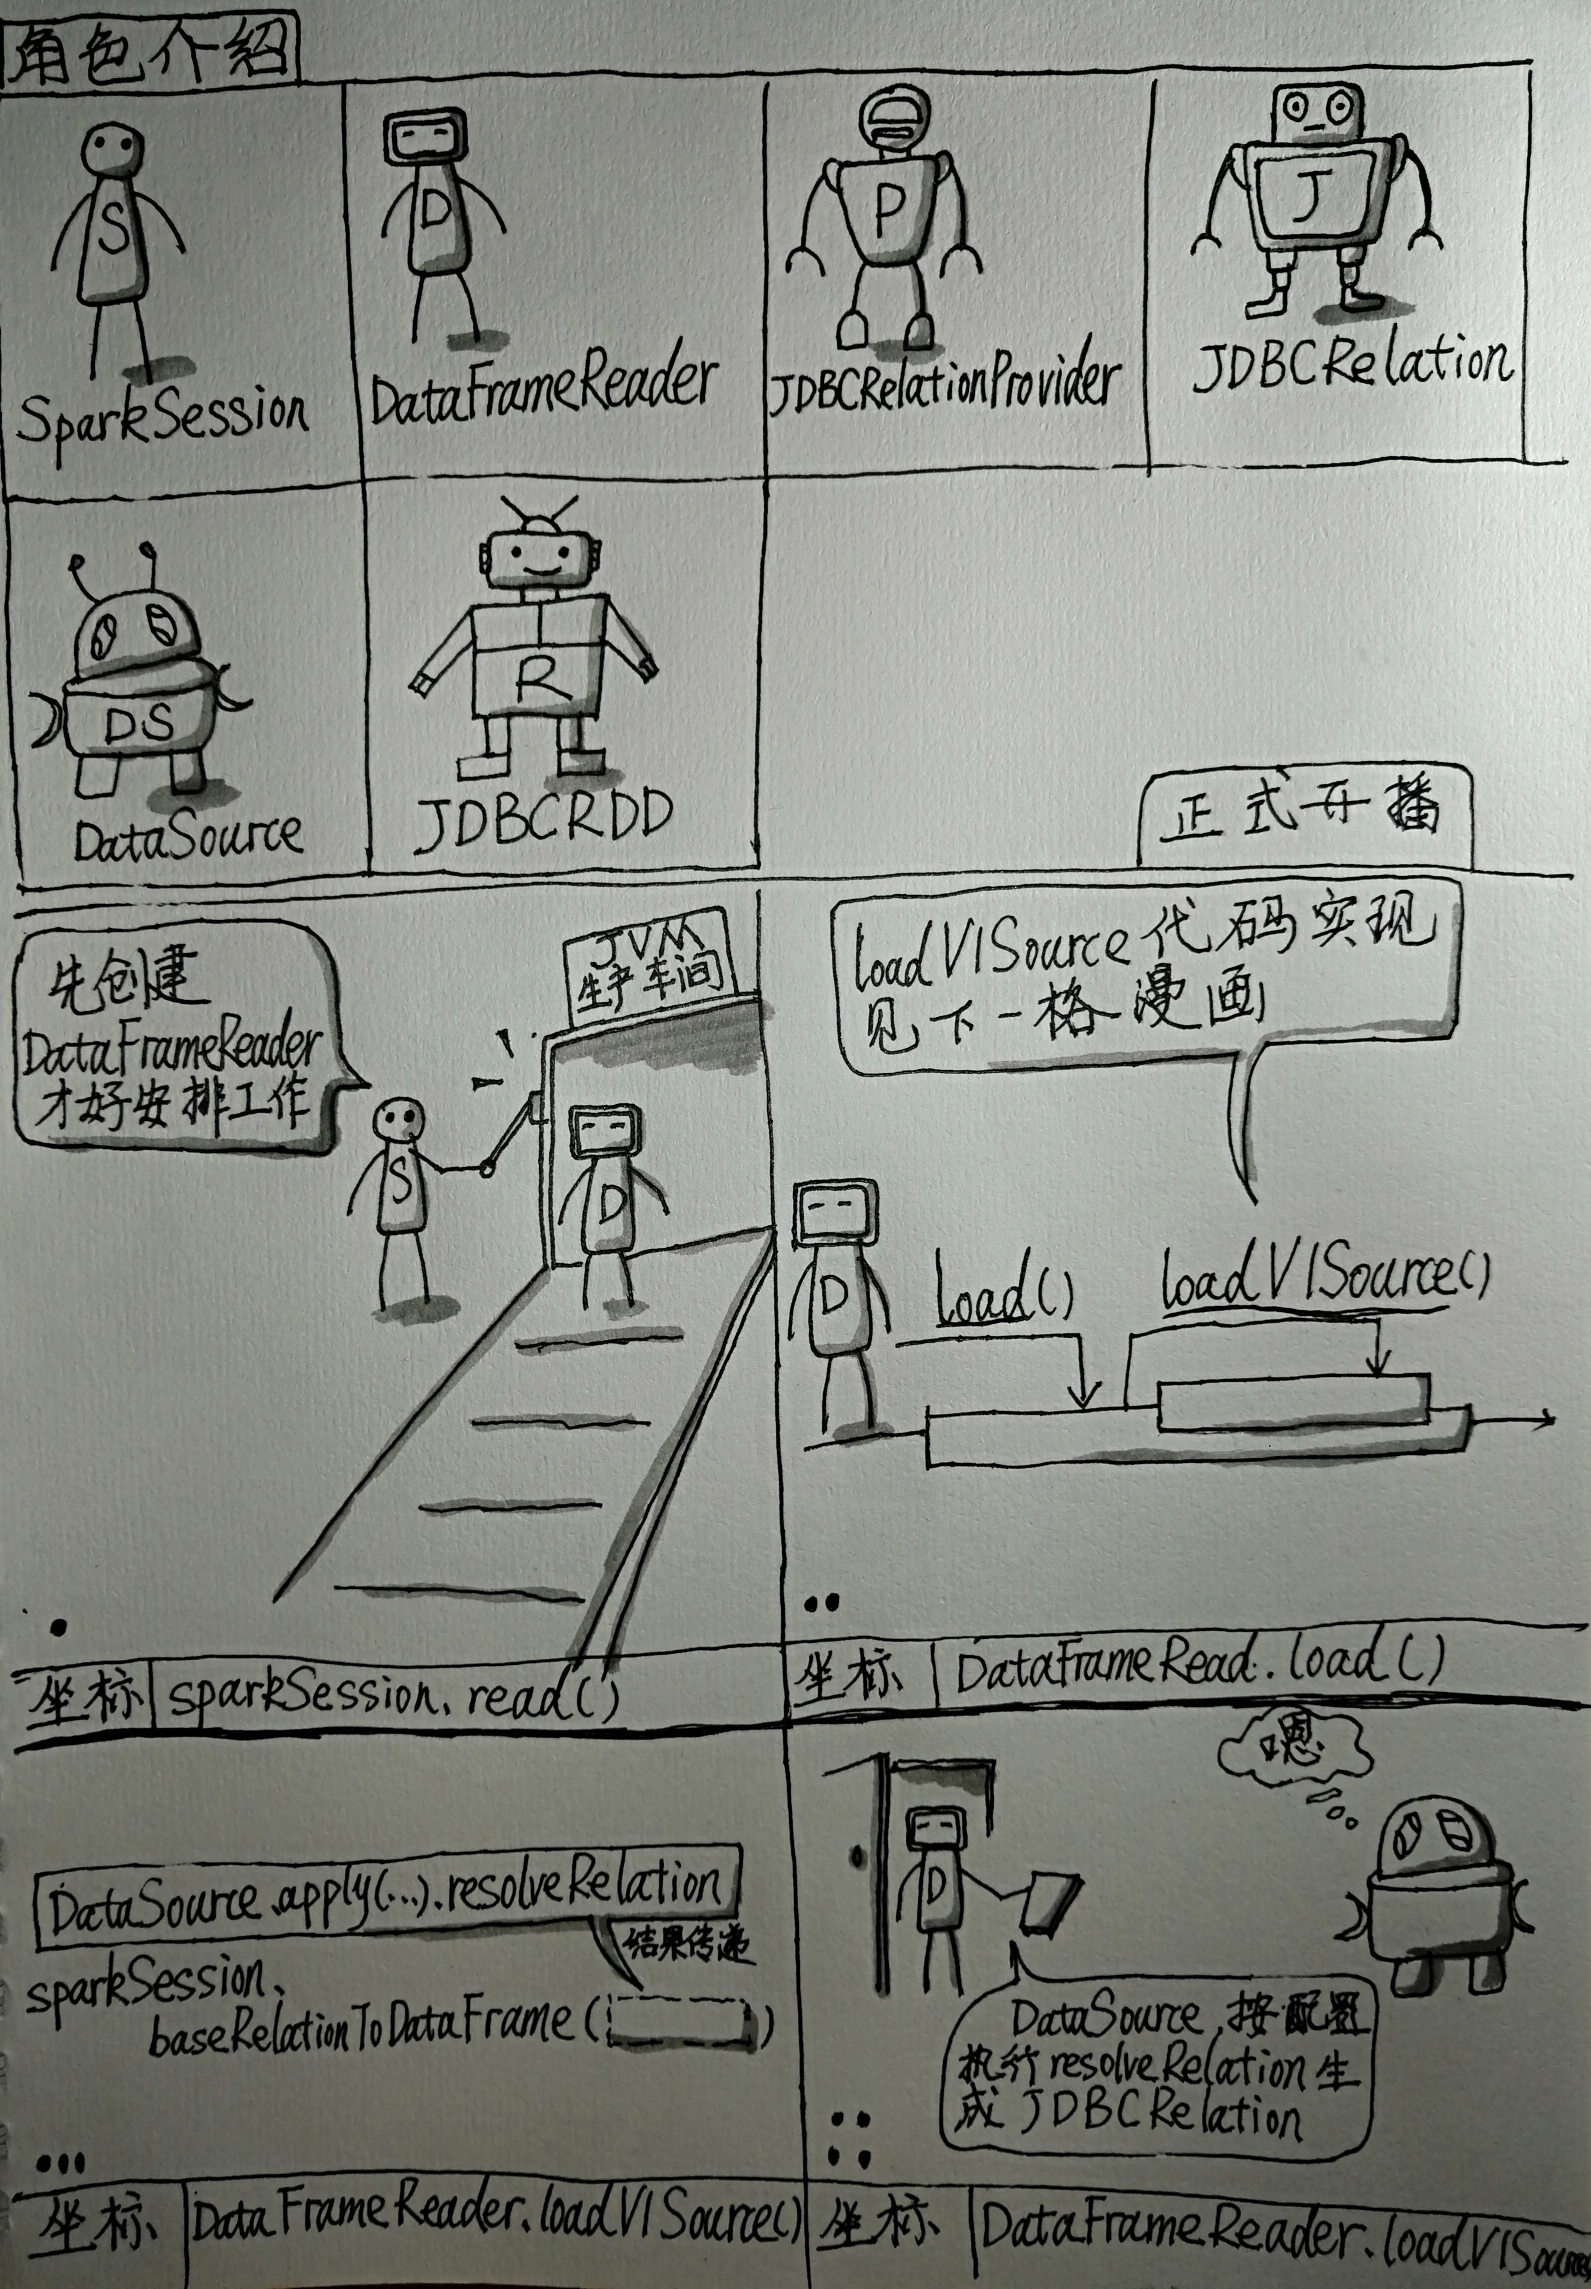 角色介绍
S
D
P
J
SparkSession
DataFrameReader
JDBCRelationProvider
JDBCRelation
DS
R
DataSource
JDBCRDD
正式开播
先创建
DataFrameReader
才好安排工作
JVM
生产车间
S
D
loadV1Source代码实现
见下一格漫画
D
load()
loadV1Source()
坐标 sparkSession.read()
坐标 DataFrameRead.load()
DataSource.apply(...).resolveRelation
结果传递
sparkSession.
baseRelationToDataFrame( )
嗯
D
DataSource,按配置
执行resolveRelation生
成JDBCRelation
坐标 DataFrameReader.loadV1Source()
坐标 DataFrameReader.loadV1Source